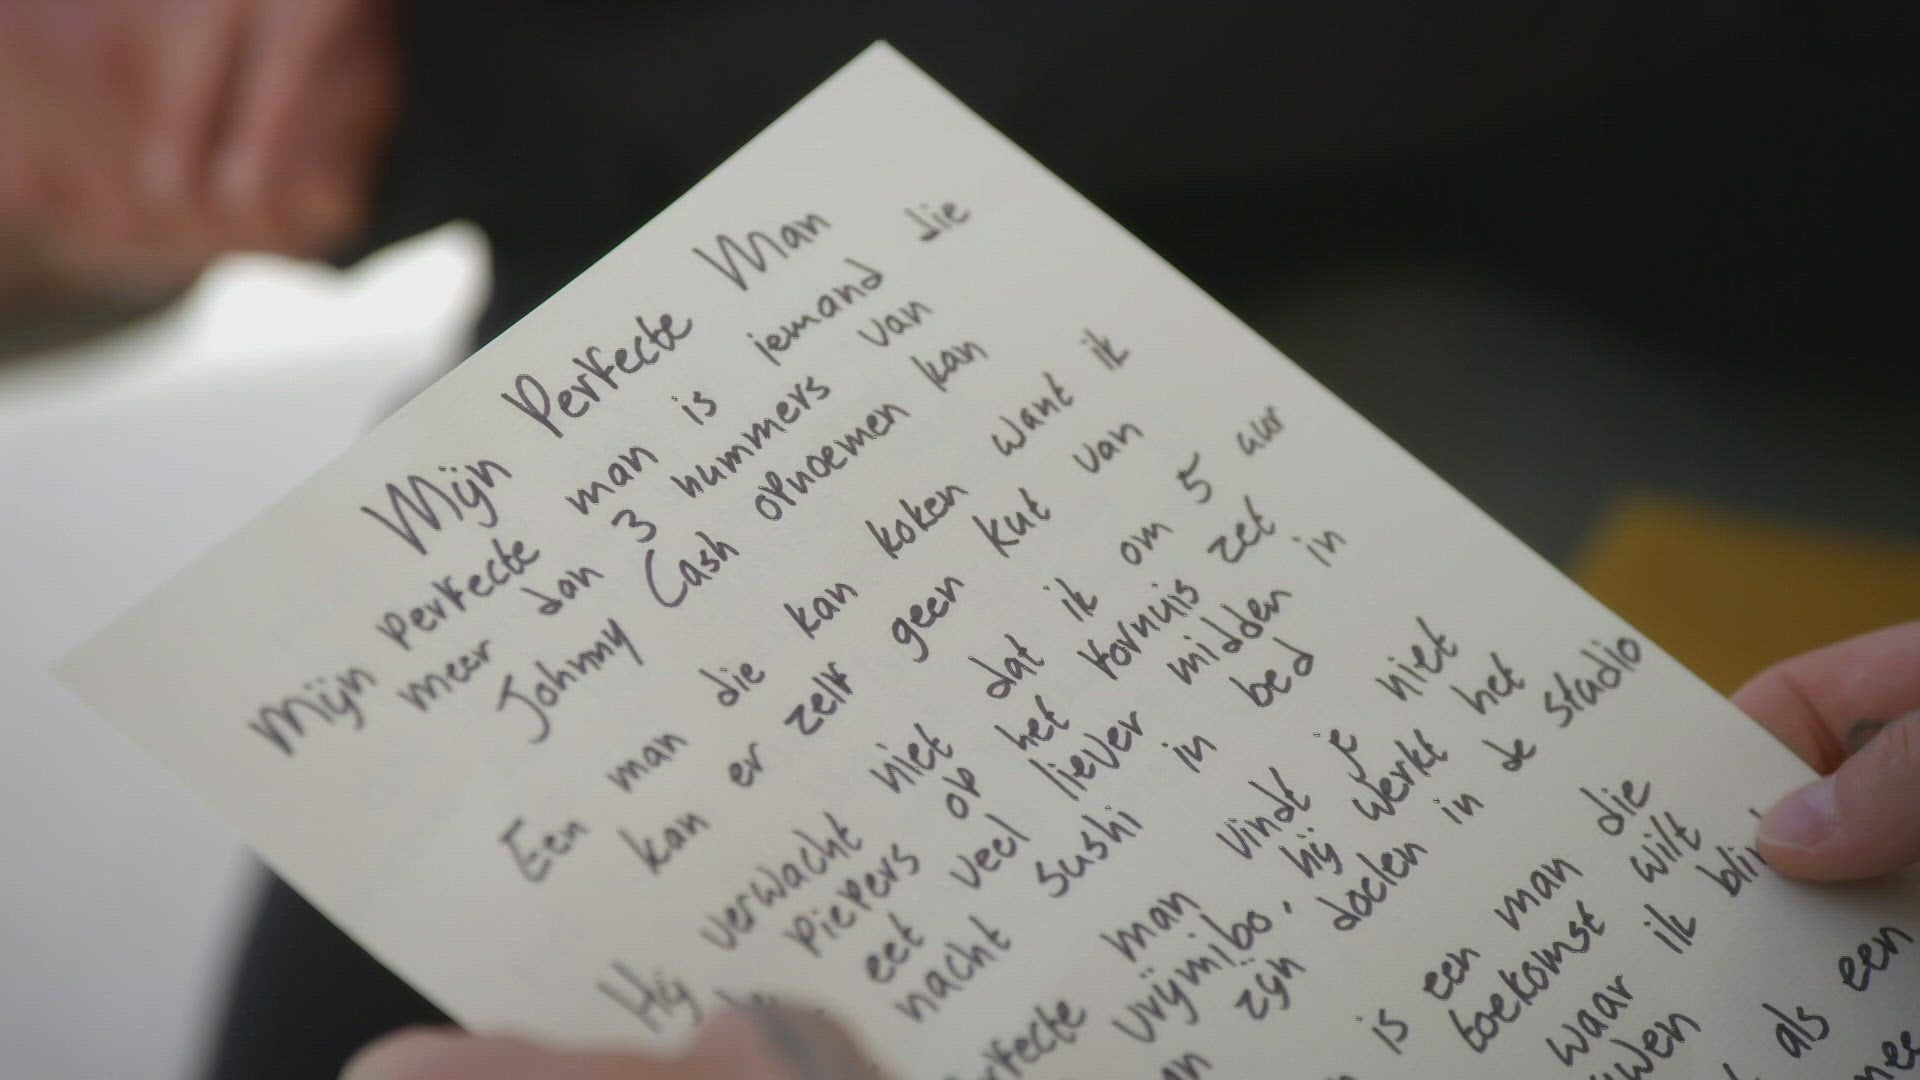 Mijn Perfecte Man
Mijn perfecte man is iemand die
meer dan 3 nummers van
Johnny Cash opnoemen kan
Een man die kan koken want ik
kan er zelf geen kut van
Hij verwacht niet dat ik om 5 uur
piepers op het fornuis zet
eet veel liever midden in
nacht sushi in bed
man vindt je niet
vrijmibo, hij werkt het
zijn doelen in de studio
is een man die
toekomst wilt
waar ik
als een